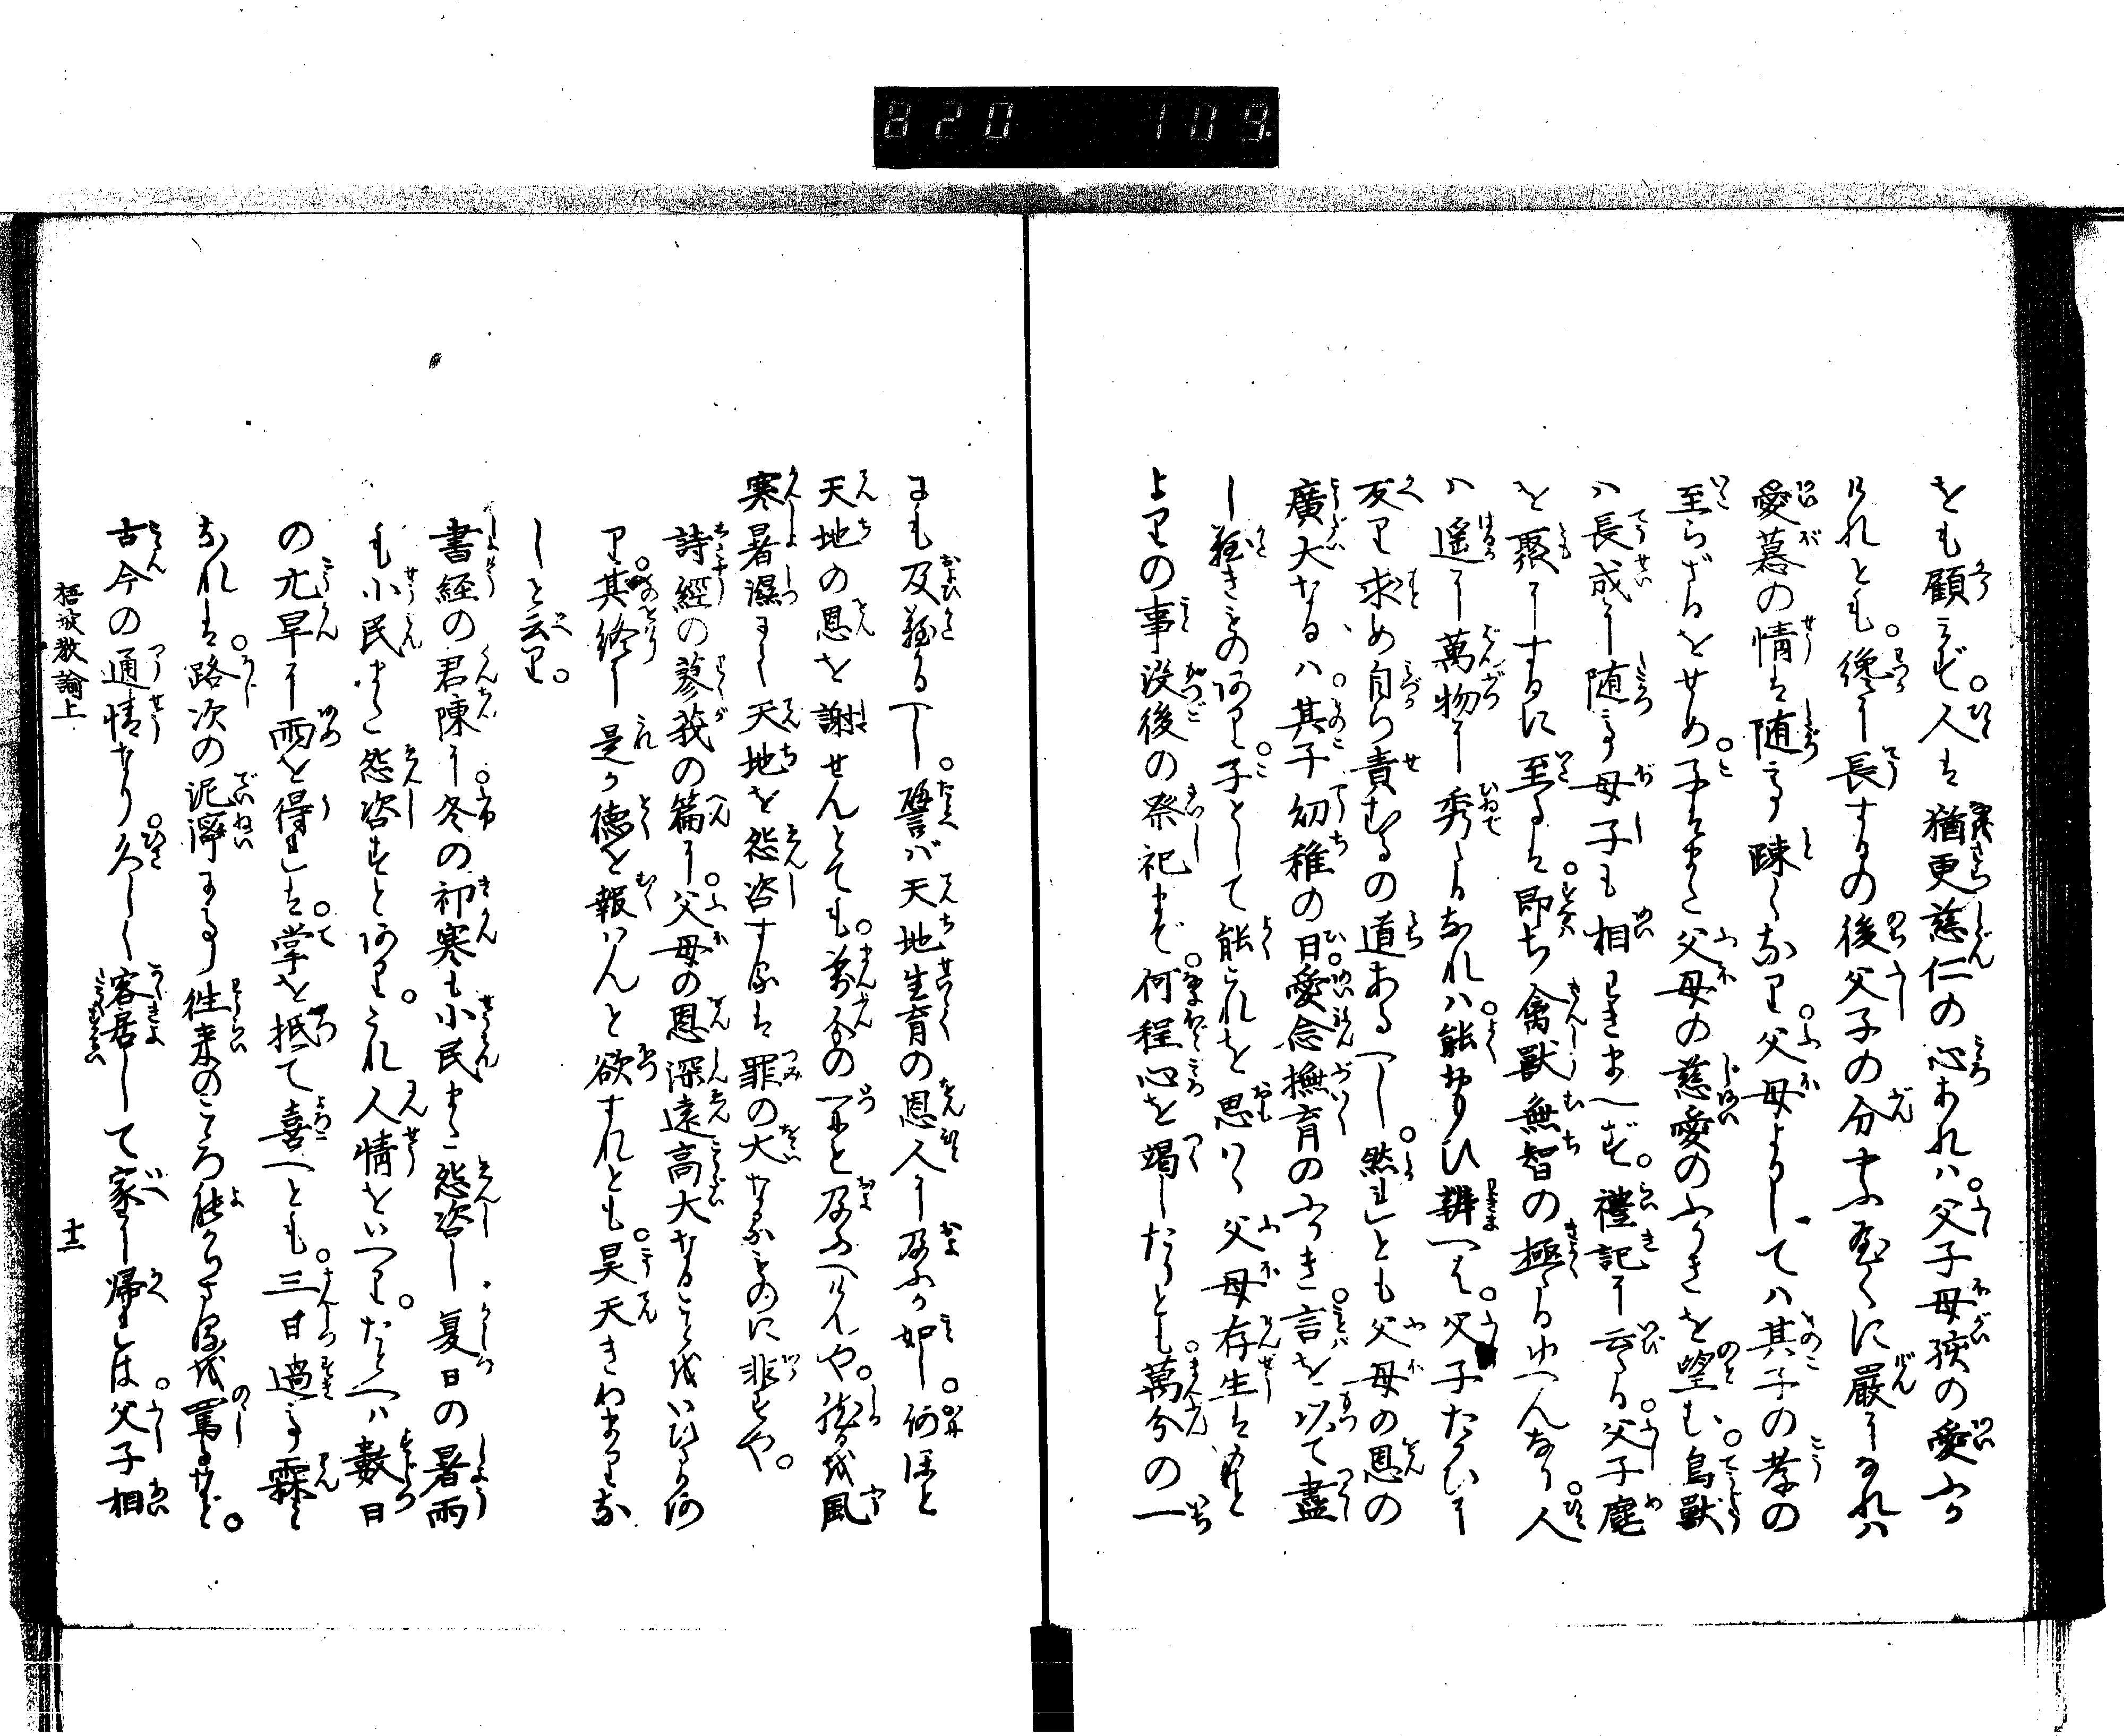 820 109.
をも顧みず。人は猶更慈仁の心あれハ。父子母孩の愛ふか
けれとも。稳に長するの後父子の分十ふ厳になれハ
愛慕の情は随て踈くなり。父母よりしてハ其子の孝の
至らざるをせめ。子はまた父母の慈愛のふかきを望む。鳥獸
ハ長成に随て母子も相わきまへず。禮記に云る父子麀
を聚にするに至るは。即ち禽獸無智の極るゆへんなり。人
ハ遥に萬物に秀たるなれハ。能おもひ辨へは。父子たかひに
反り求め自ら責むるの道あるへし。然れとも父母の恩の
廣大なるハ。其子幼稚の日。愛念撫育のふかき。言を以て盡
し難きものあり。子として能これを思ハゝ父母存生はもと
よりの事没後の祭祀まで。何程心を竭したりとも。萬分の一
にも及難るへし。譬バ天地生育の恩人に及ふか如し。何ほと
天地の恩を謝せんとても。萬分の一にも及ふへけんや。然るを風
寒暑濕にて天地を怨咨するは罪の大なるものに非すや。
詩經の蓼莪の篇に。父母の恩深遠高大なることをいひたる何
り。其終に是か徳を報ハんと欲すれとも。昊天きわまりな
しと云り。
書経の君陳に。冬の祁寒も小民また怨咨し。夏日の暑雨
も小民また怨咨すとあり。これ人情をいへり。たとへハ數日
の亢旱に雨を得れは。掌を抵て喜へとも。三日過て霖と
なれは。路次の泥濘する往来のころ能からさるを罵るなど。
古今の通情なり。久しく客居して家に帰れは。父子相
梧坡教諭上 十二